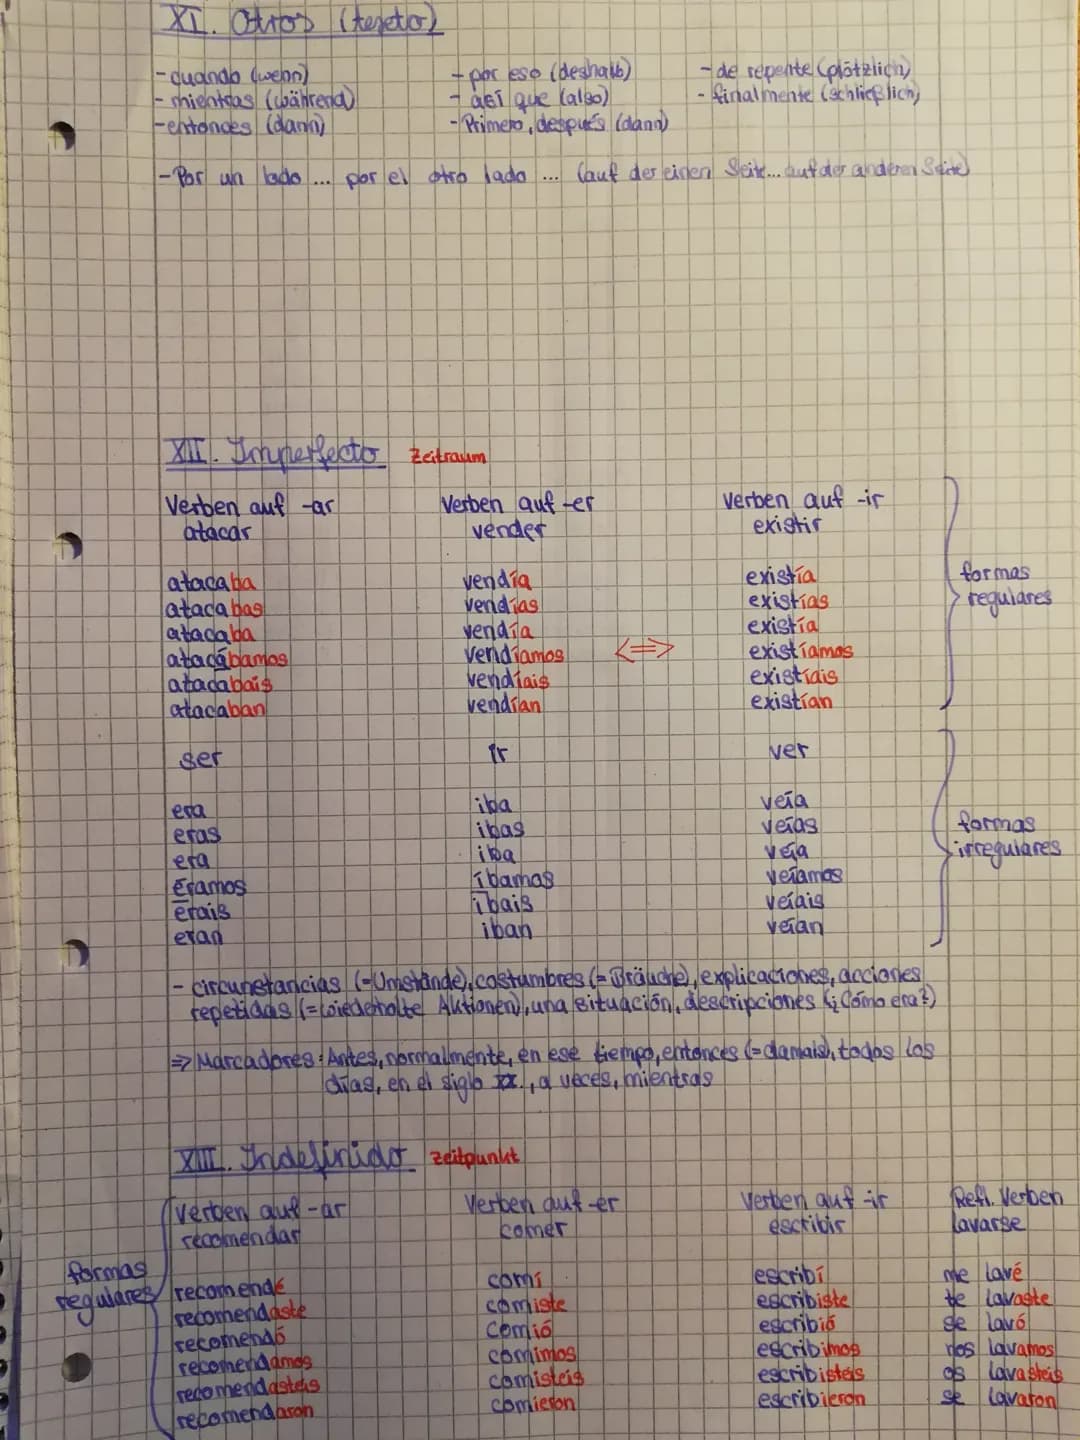 XI. Otros (texto)
- cuando (wenn) - por eso (deshalb) - de repente (plötzlich)
- mientras (während) - así que (also) - finalmente (schließlich)
- entonces (dann) - Primero, después (dann)
- Por un lado ... por el otro lado ... (auf der einen Seite... auf der anderen Seite)
XII. Imperfecto Zeitraum
Verben auf -ar Verben auf -er Verben auf -ir
atacar vender existir
atacaba vendía existía formas
atacabas vendías existías regulares
atacaba vendía existía
atacábamos vendíamos <=> existíamos
atacabais vendíais existíais
atacaban vendían existían
ser ir ver
era iba veía
eras ibas veías formas
era iba veía irregulares
Éramos íbamos veíamos
érais íbais veíais
eran iban veían
- circunstancias (=Umstände), costumbres (=Bräuche), explicaciones, acciones
repetidas (=wiederholte Aktionen), una situación, descripciones (¿Cómo era?)
=> Marcadores: Antes, normalmente, en ese tiempo, entonces (=damals), todos los
días, en el siglo XX., a veces, mientras
XIII. Indefinido Zeitpunkt
Verben auf -ar Verben auf -er Verben auf -ir Refl. Verben
recomendar comer escribir lavarse
formas
regulares recomendé comí escribí me lavé
recomendaste comiste escribiste te lavaste
recomendó comió escribió se lavó
recomendamos comimos escribimos nos lavamos
recomendasteis comisteis escribisteis os lavasteis
recomendaron comieron escribieron se lavaron